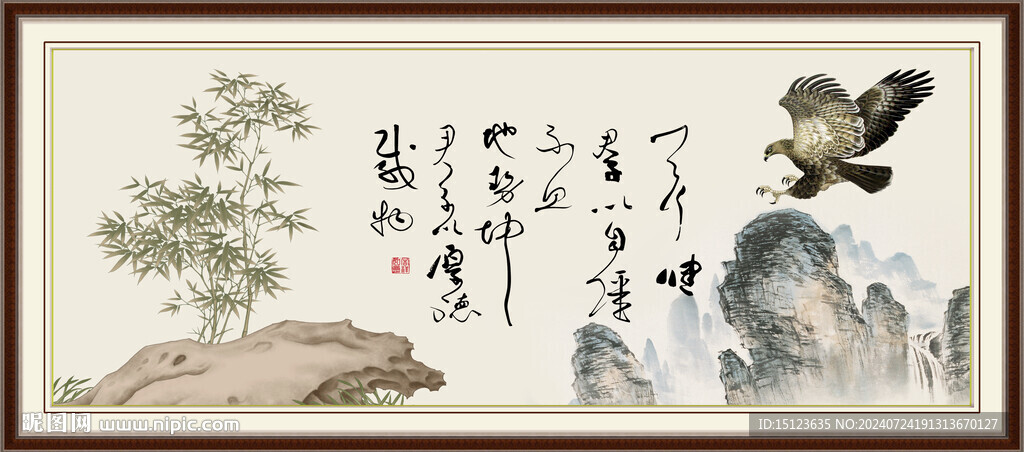 天行健
君子以自强
不息
地势坤
君子以厚德
载物
昵图网 www.nipic.com
ID:15123635 NO:20240724191313670127